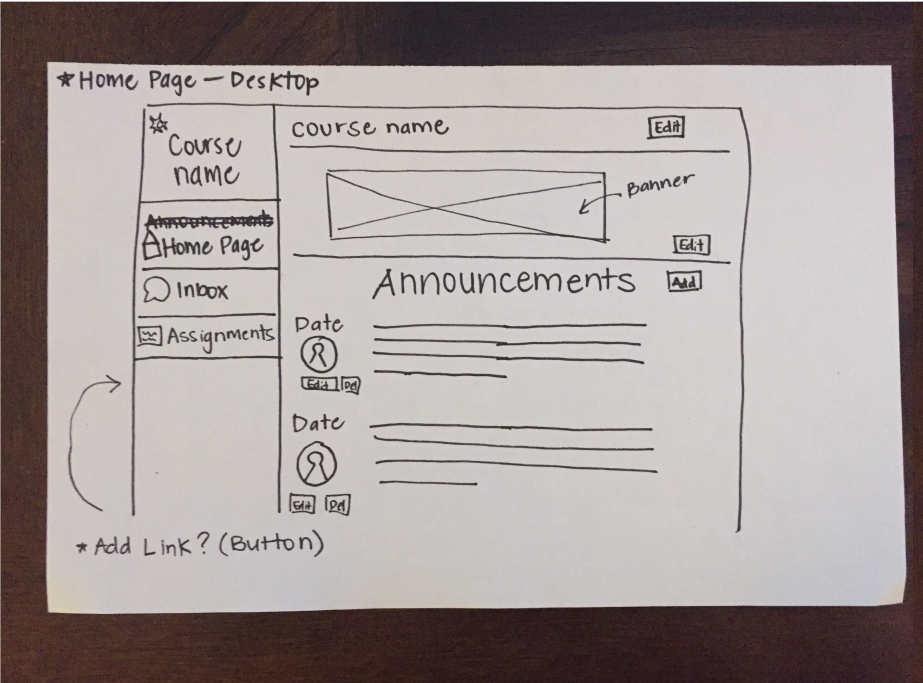 *Home Page — Desktop
Course
name
Announcements
Home Page
Inbox
Assignments
course name
Edit
Banner
Edit
Announcements
Add
Date
Edit Del
Date
Edit Del
*Add Link? (Button)